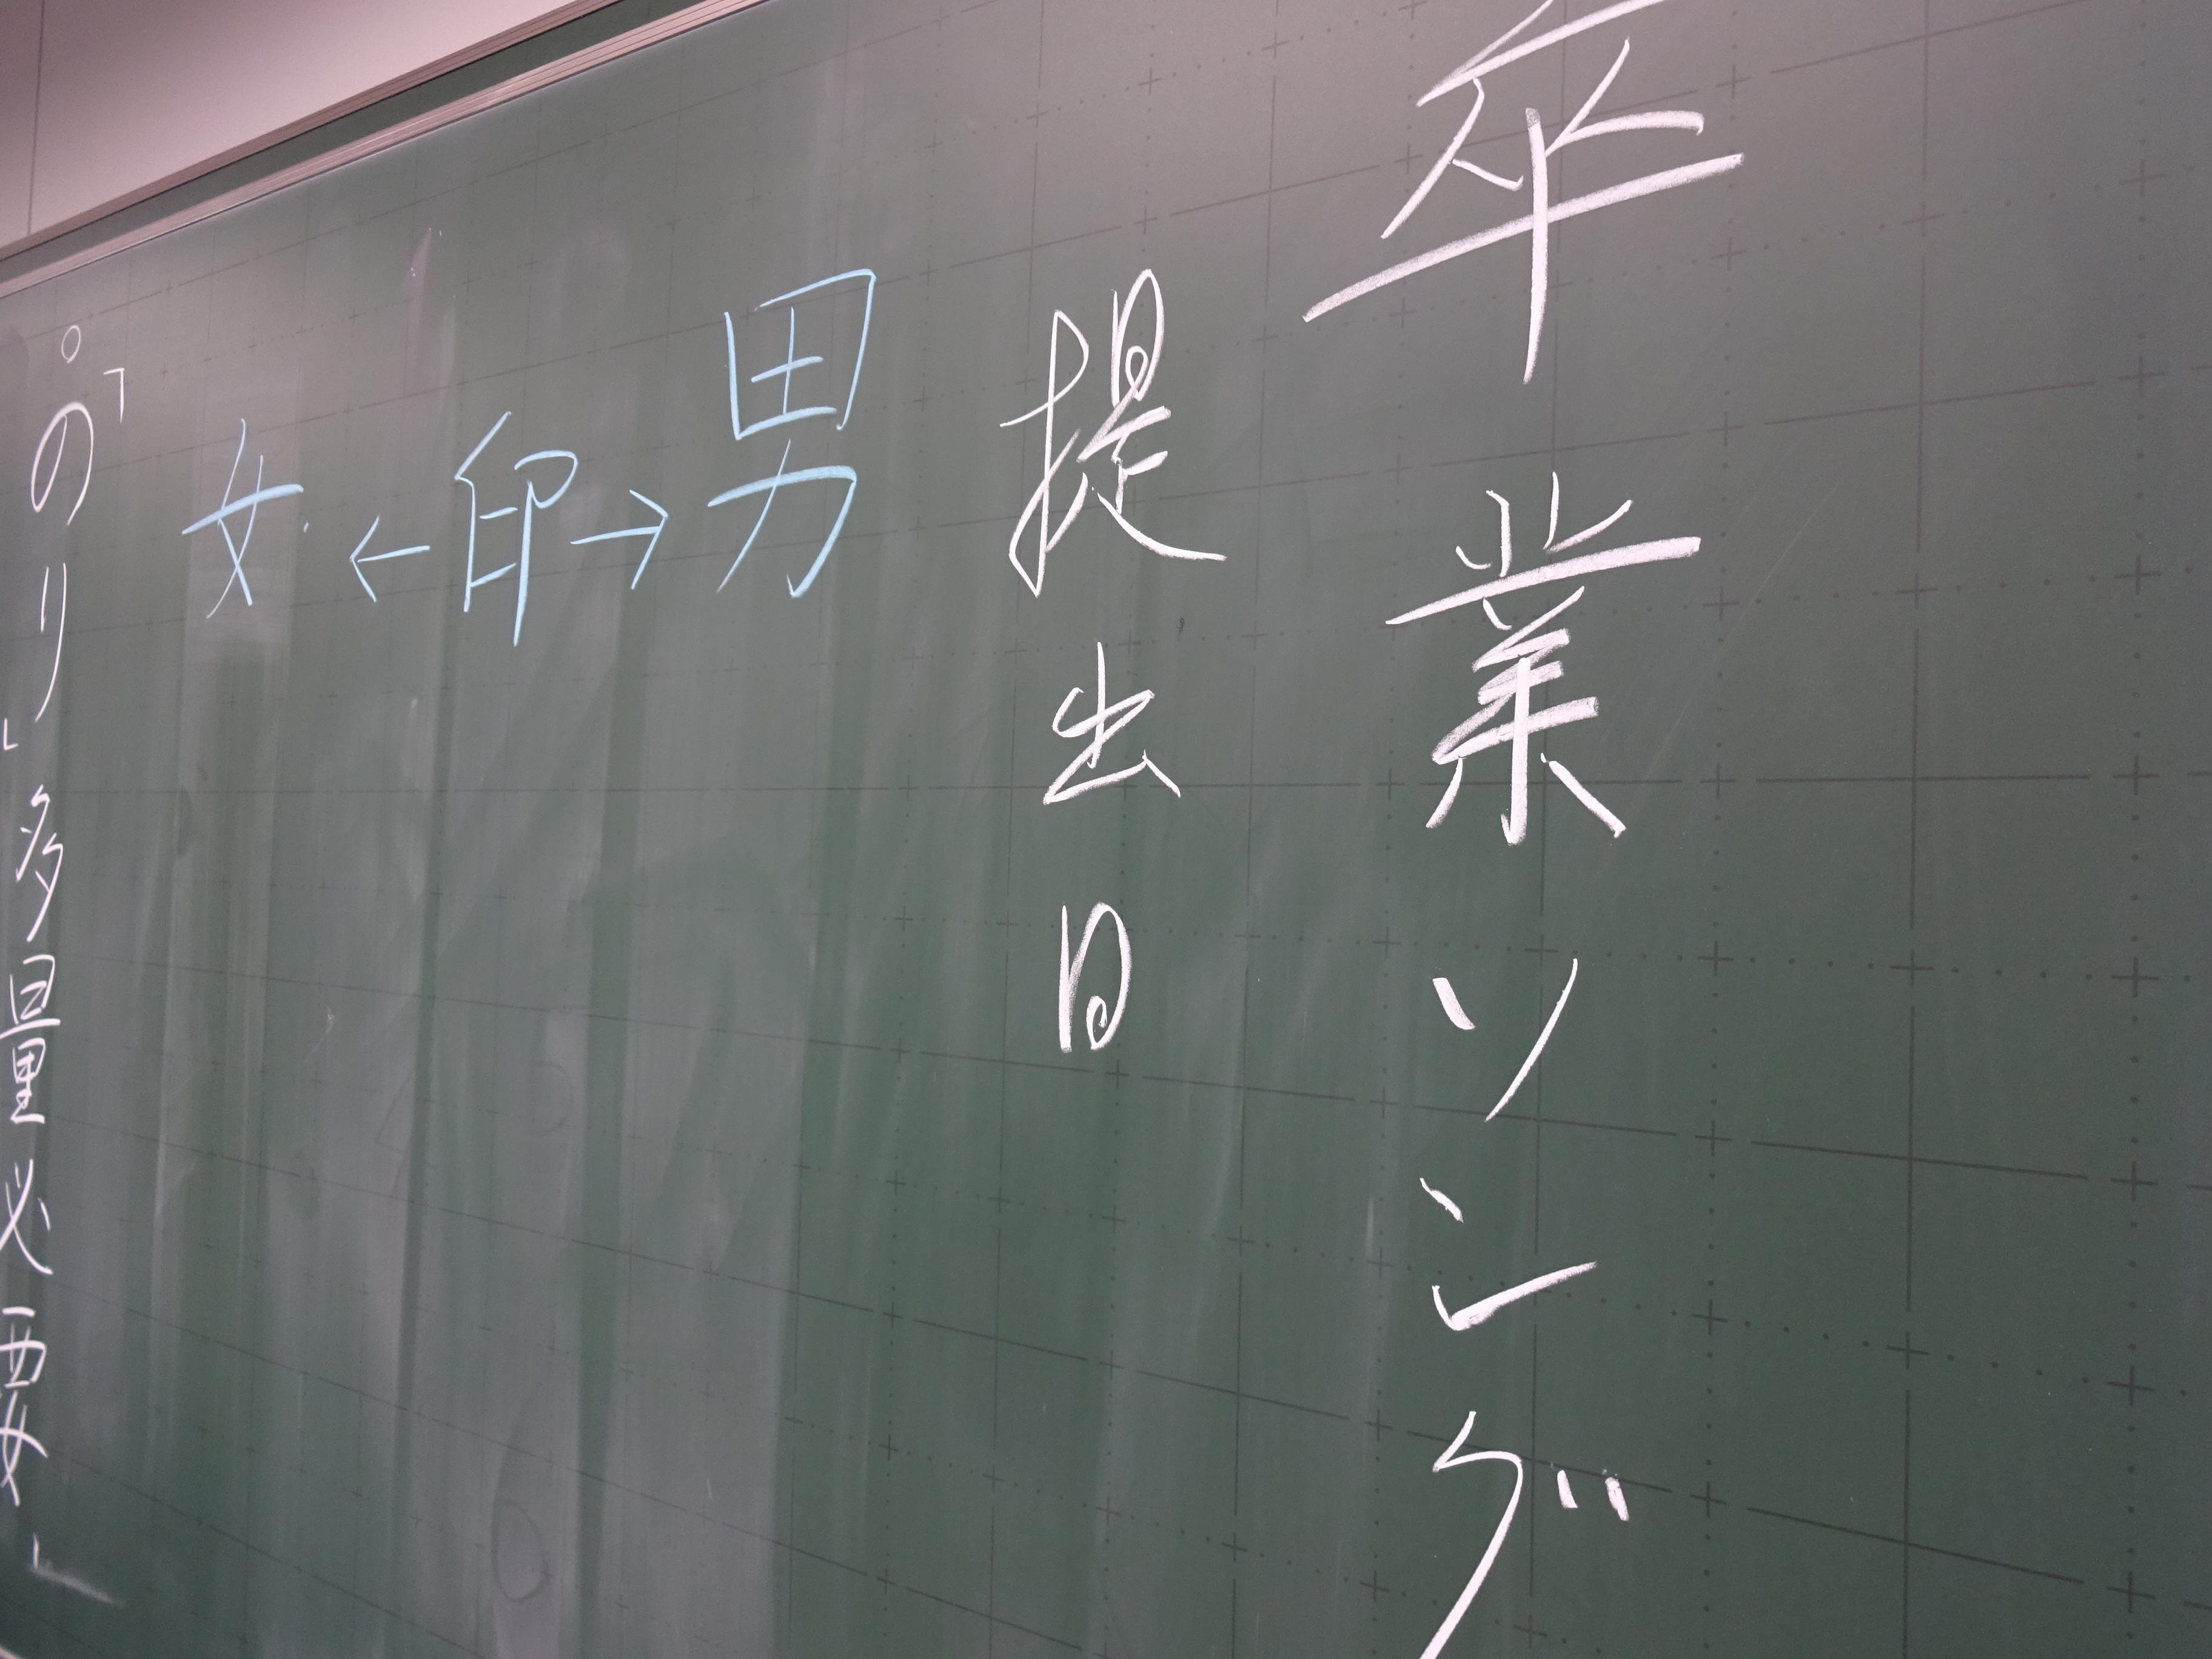 卒業ソング
提出日
女←印→男
。「のり」多量必要」